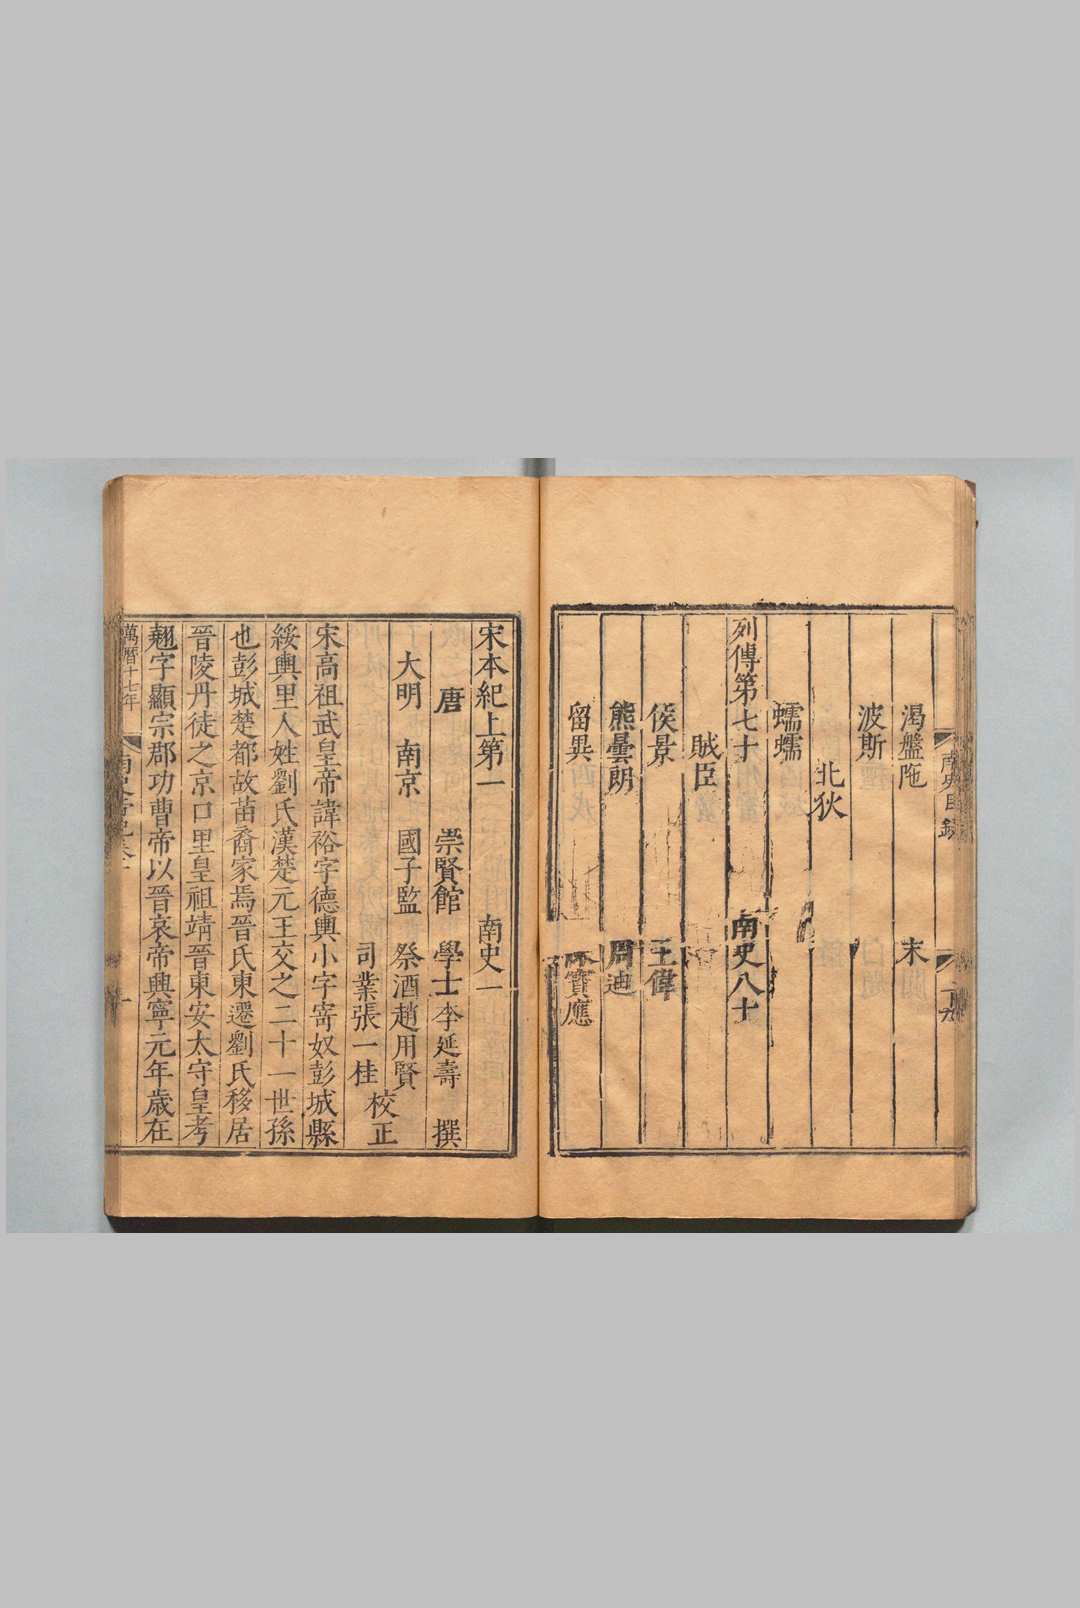 渴盤陁　末
波斯
北狄
蠕蠕
列傳第七十　南史八十
賊臣
侯景　王偉
熊曇朗　周迪
留異　寶應
南史目錄
宋本紀上第一　南史一
唐　崇賢館　學士李延壽　撰
大明　南京　國子監　祭酒趙用賢
司業張一桂　校正
宋高祖武皇帝諱裕字德輿小字寄奴彭城縣
綏輿里人姓劉氏漢楚元王交之二十一世孫
也彭城楚都故苗裔家焉晉氏東遷劉氏移居
晉陵丹徒之京口里皇祖靖晉東安太守皇考
翹字顯宗郡功曹帝以晉哀帝興寧元年歲在
萬曆十七年